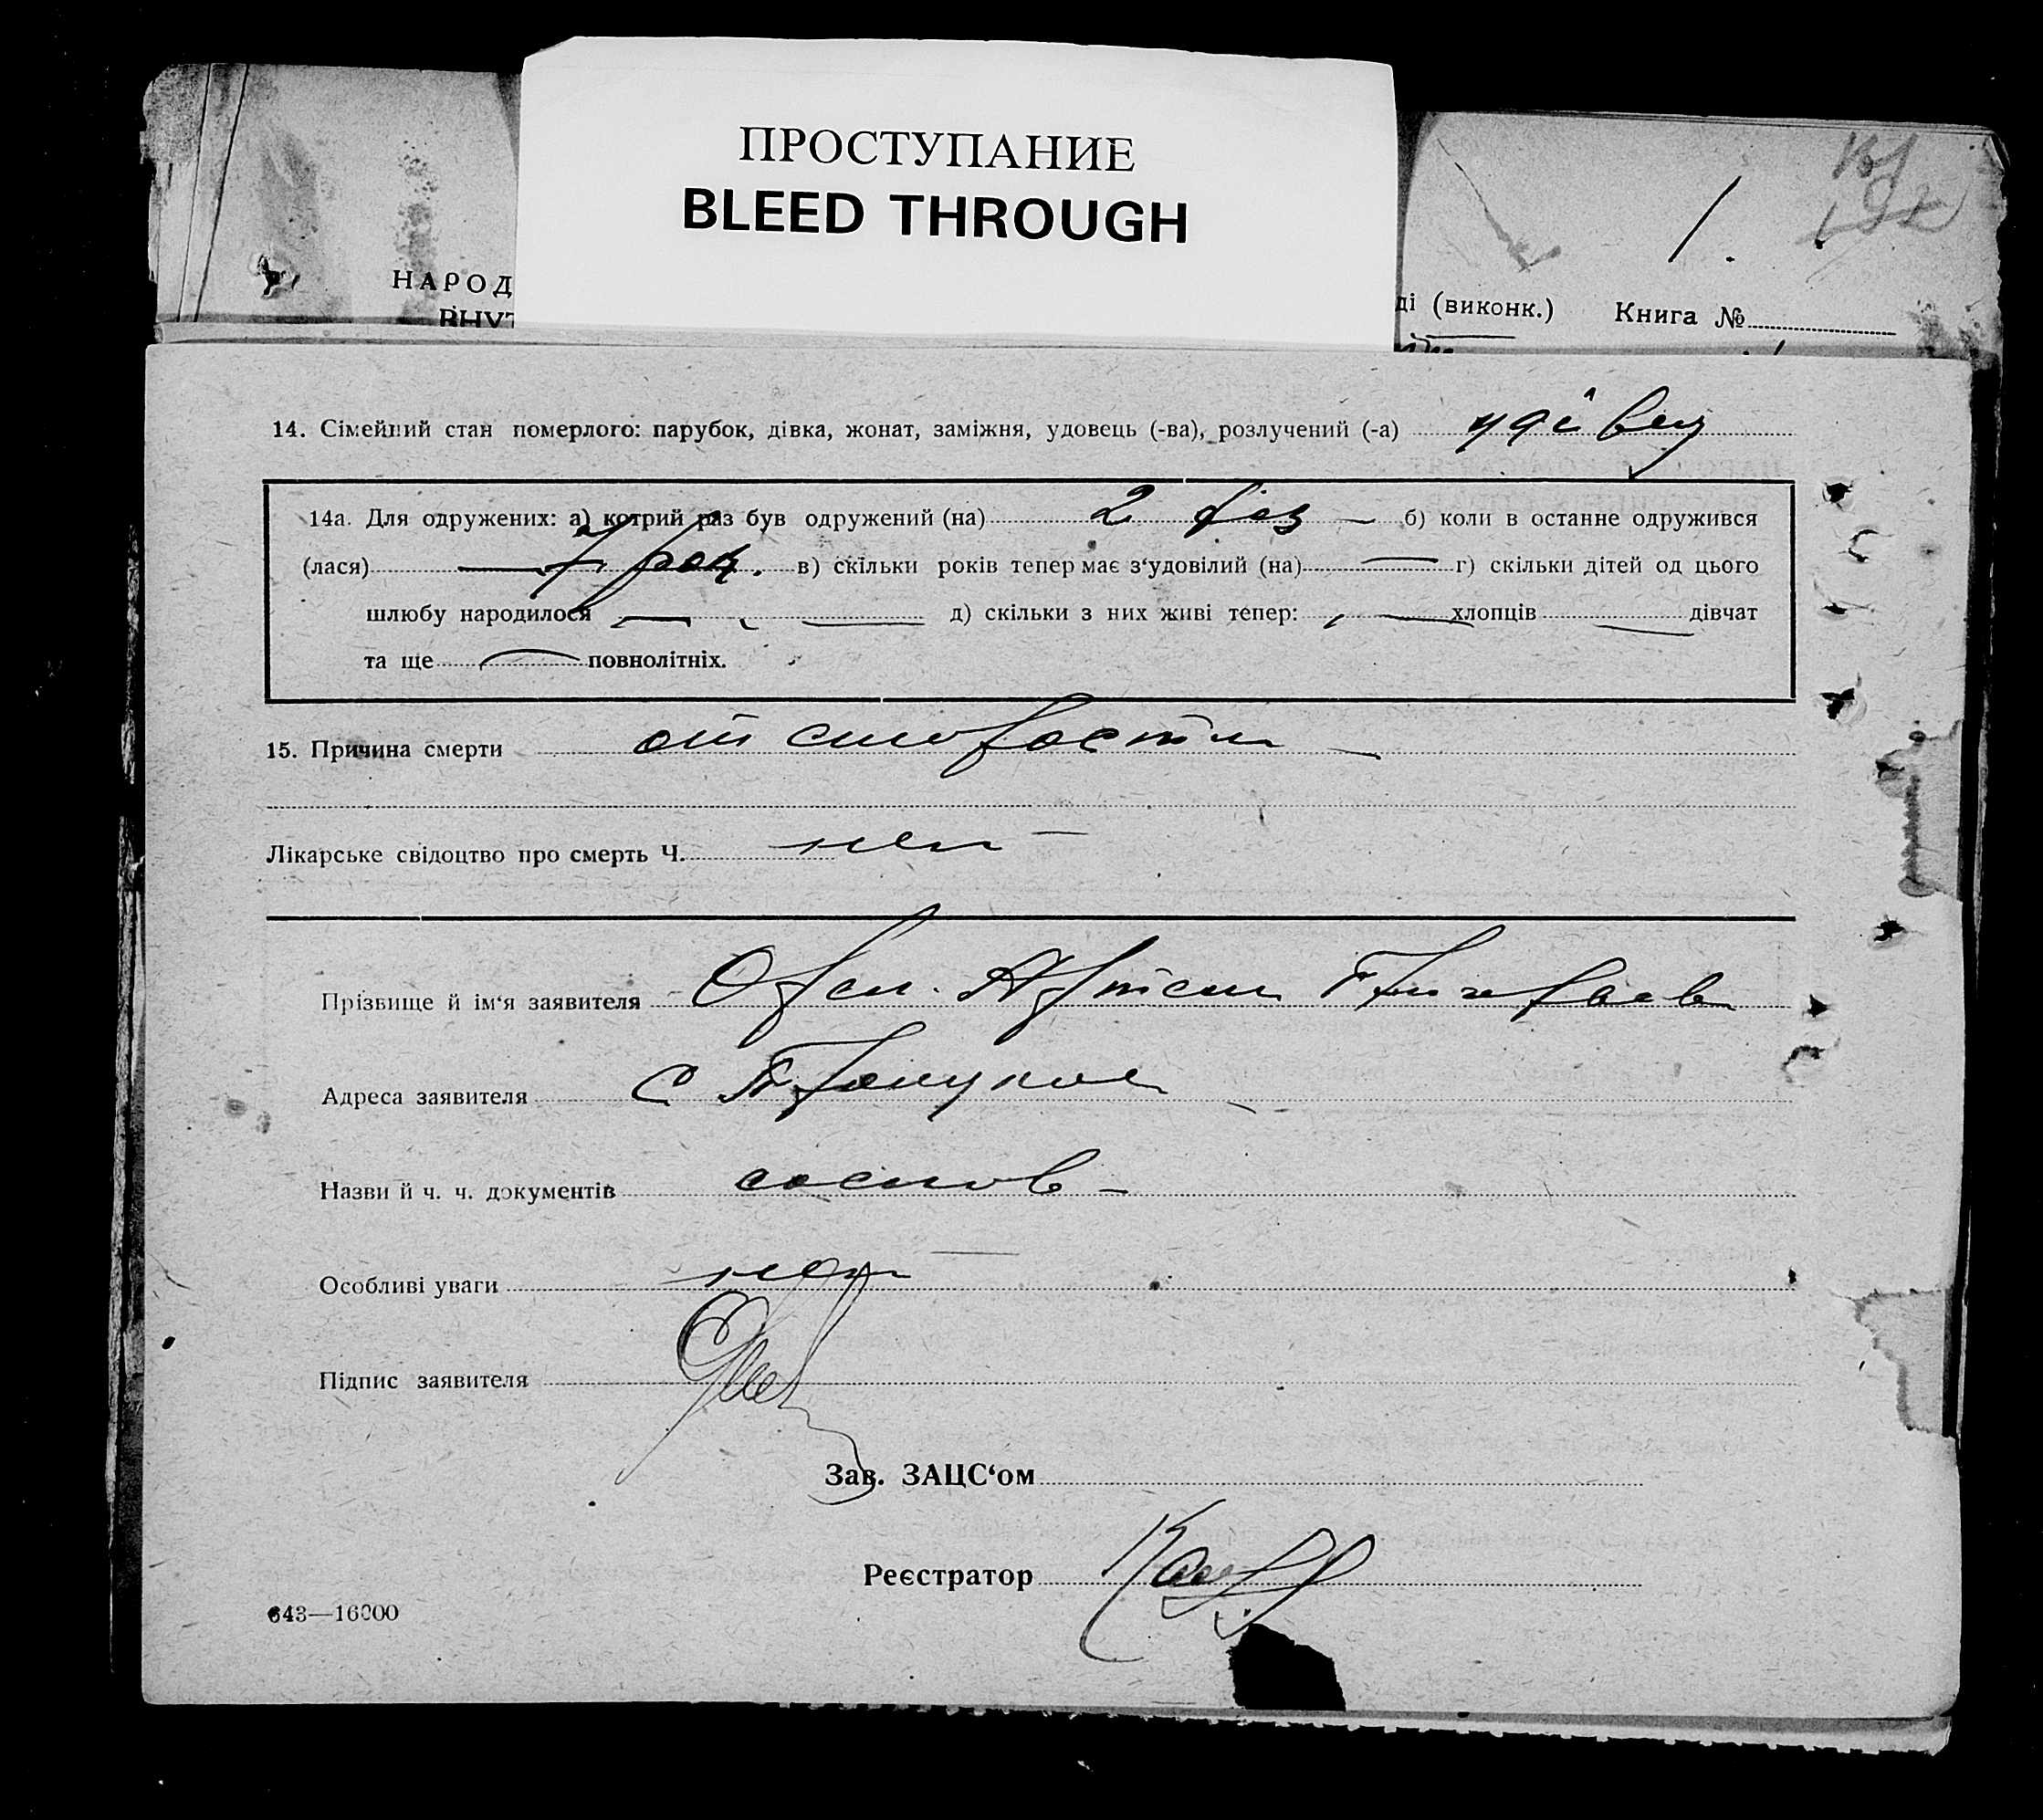 ПРОСТУПАНИЕ
BLEED THROUGH
1.
НАРОД
ВНУТ
ді (виконк.) Книга №
14. Сімейний стан померлого: парубок, дівка, жонат, заміжня, удовець (-ва), розлучений (-а) удівец
14а. Для одружених: а) котрий раз був одружений (на) 2 раз б) коли в останне одружився
(лася) в) скільки років тепер має з‘удовілий (на) — г) скільки дітей од цього
шлюбу народилося — д) скільки з них живі тепер: — хлопців — дівчат
та ще — повнолітніх.
15. Причина смерти от старости —
Лікарське свідоцтво про смерть Ч. нет —
Прізвище й ім‘я заявителя Артем
Адреса заявителя с
Назви й ч. ч. документів —
Особливі уваги нет
Підпис заявителя
Зав. ЗАЦС‘ом
Реєстратор
643—16000